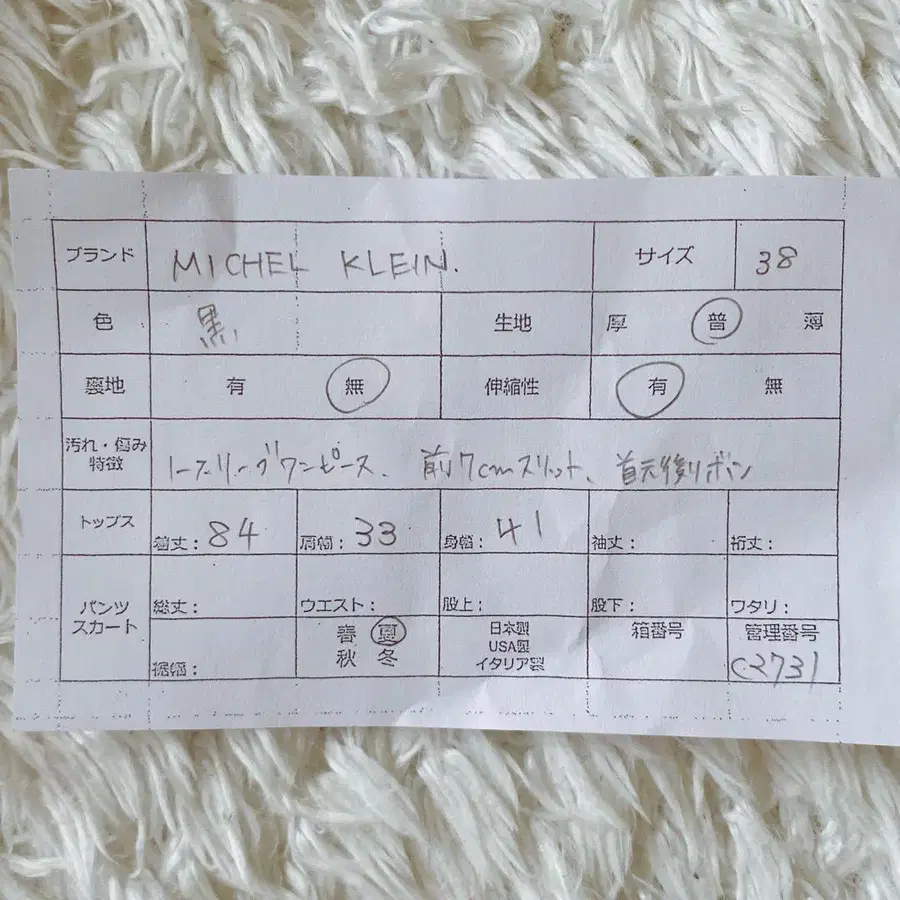 ブランド MICHEL KLEIN. サイズ 38
色 黒 生地 厚 普 薄
裏地 有 無 伸縮性 有 無
汚れ・傷み
特徴 ノースリーブワンピース、前17cmスリット、首元後リボン
トップス 着丈:84 肩幅:33 身幅:41 袖丈: 裄丈:
パンツ
スカート 総丈: ウエスト: 股上: 股下: ワタリ:
裾幅: 春 夏 日本製 箱番号 管理番号
秋 冬 USA製 C2731
イタリア製